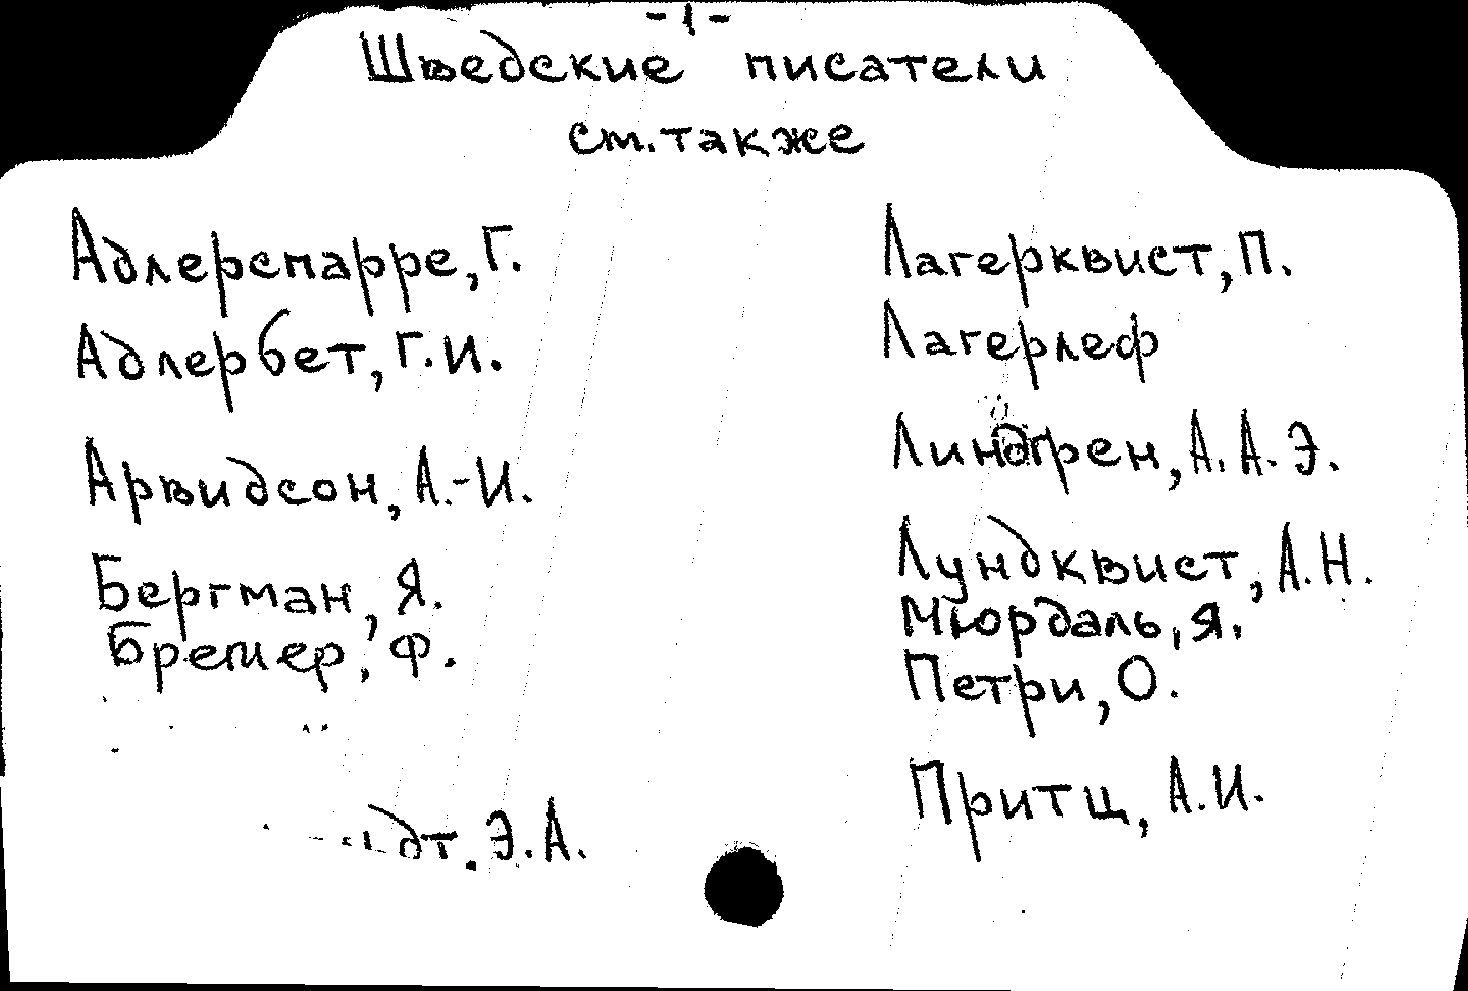 - 1 -
Шведские писатели
см. также
Адлерспарре, Г.
Адлербет, Г. И.
Арвидсон, А.-И.
Бергман, Я.
Бремер, Ф.
Э. А.
Лагерквист, П.
Лагерлеф
Линдгрен, А. А. Э.
Лундквист, А. Н.
Мюрдаль, Я.
Петри, О.
Притц, А. И.